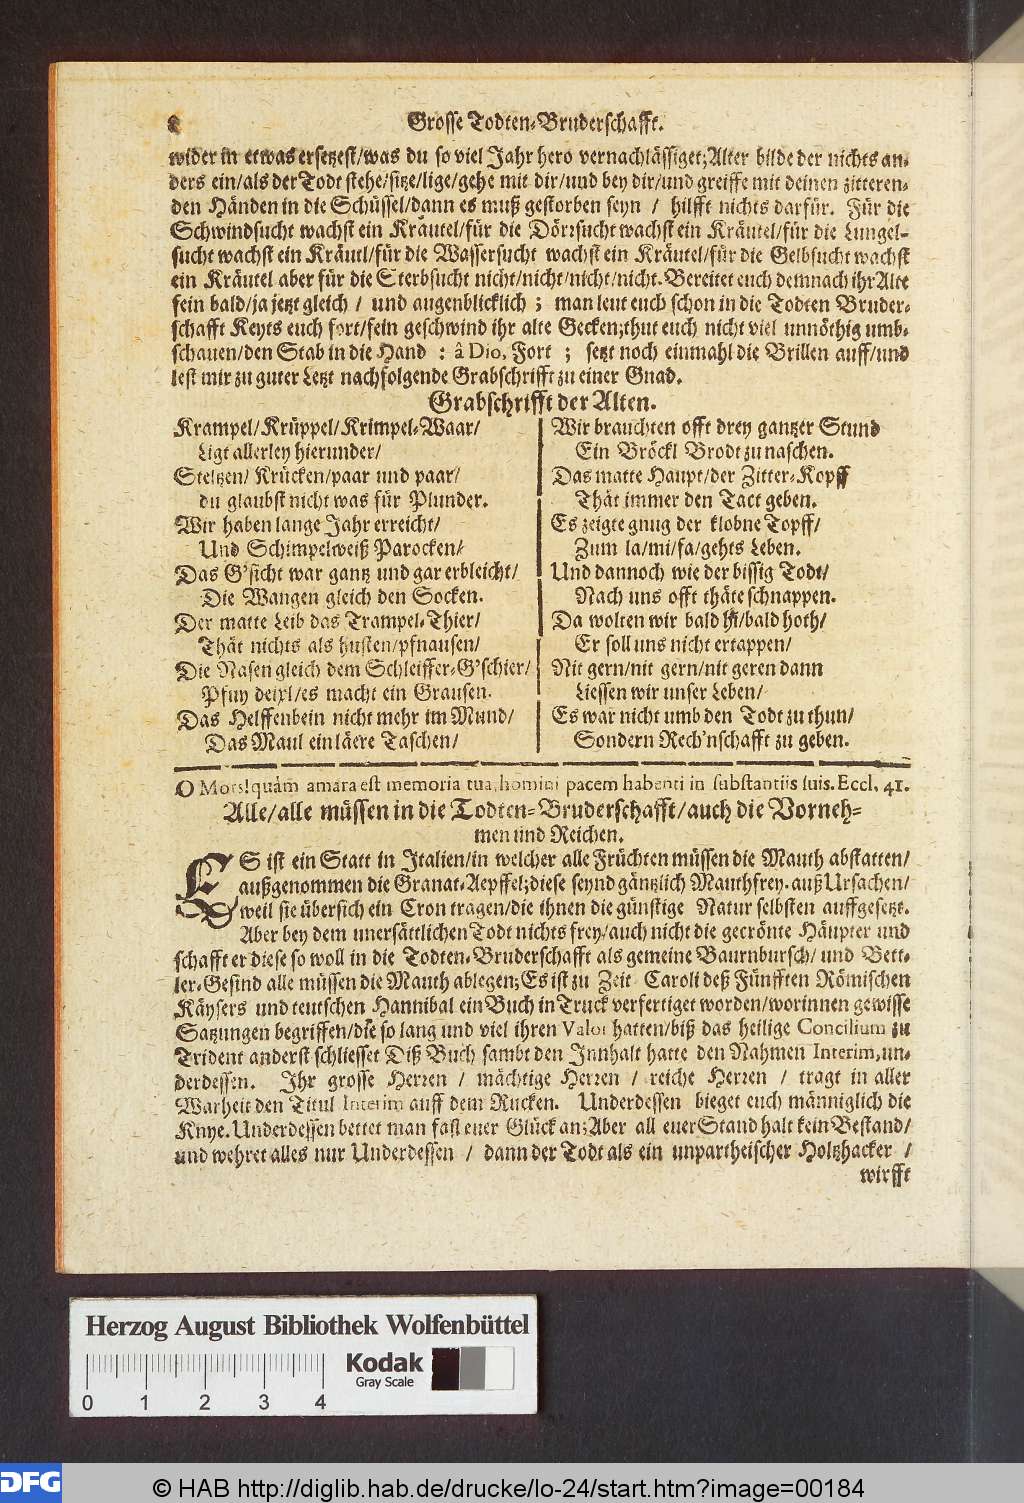 8 Grosse Todten-Bruderschafft.
wider in etwas ersetzest/was du so viel Jahr hero vernachlässiget; Alter bilde der nichts an-
ders ein/als der Todt stehe/sitze/lige/gehe mit dir/und bey dir/und greiffe mit deinen zitteren-
den Händen in die Schüssel/dann es muß gestorben seyn / hilfft nichts darfür. Für die
Schwindsucht wachst ein Kräutel/für die Dörrsucht wachst ein Kräutel/für die Lungel-
sucht wachst ein Kräutl/für die Wassersucht wachst ein Kräutel/für die Gelbsucht wachst
ein Kräutel aber für die Sterbsucht nicht/nicht/nicht/nicht. Bereitet euch demnach ihr Alte
fein bald/ja jetzt gleich / und augenblicklich ; man leut euch schon in die Todten Bruder-
schafft Keyts euch fort/fein geschwind ihr alte Gecken; thut euch nicht viel unnöthig umb-
schauen/den Stab in die Hand : â Dio, Fort ; setzt noch einmahl die Brillen auff/und
lest mir zu guter Letzt nachfolgende Grabschrifft zu einer Gnad.
Grabschrifft der Alten.
Krampel/Krüppel/Krimpel-Waar/
Ligt allerley hierunder/
Steltzen/ Krücken/paar und paar/
du glaubst nicht was für Plunder.
Wir haben lange Jahr erreicht/
Und Schimpelweiß Parocken/
Das G'sicht war gantz und gar erbleicht/
Die Wangen gleich den Socken.
Der matte Leib das Trampel-Thier/
Thät nichts als husten/pfnausen/
Die Nasen gleich dem Schleiffer-G'schier/
Pfuy deixl/es macht ein Grausen.
Das Helffenbein nicht mehr im Mund/
Das Maul ein läere Taschen/
Wir brauchten offt drey gantzer Stund
Ein Bröckl Brodt zu naschen.
Das matte Haupt/der Zitter-Kopff
Thät immer den Tact geben.
Es zeigte gnug der klobne Topff/
Zum la/mi/fa/gehts Leben.
Und dannoch wie der bissig Todt/
Nach uns offt thäte schnappen.
Da wolten wir bald hi/bald hoth/
Er soll uns nicht ertappen/
Nit gern/nit gern/nit geren dann
Liessen wir unser Leben/
Es war nicht umb den Todt zu thun/
Sondern Rech'nschafft zu geben.
O Mors! quàm amara est memoria tua, homini pacem habenti in substantiis suis. Eccl. 41.
Alle/alle müssen in die Todten-Bruderschafft/auch die Vorneh-
men und Reichen.
ES ist ein Statt in Italien/in welcher alle Früchten müssen die Mauth abstatten/
außgenommen die Granat-Aepffel; diese seynd gäntzlich Mauthfrey. auß Ursachen/
weil sie übersich ein Cron tragen/die ihnen die günstige Natur selbsten auffgesetzt.
Aber bey dem unersättlichen Todt nichts frey/auch nicht die gecrönte Häupter und
schafft er diese so woll in die Todten-Bruderschafft als gemeine Baurnbursch/ und Bett-
ler-Gesind alle müssen die Mauth ablegen; Es ist zu Zeit Caroli deß Fünfften Römischen
Käysers und teutschen Hannibal ein Buch in Truck verfertiget worden/worinnen gewisse
Satzungen begriffen/die so lang und viel ihren Valor hatten/biß das heilige Concilium zu
Trident anderst schliesset Diß Buch sambt den Innhalt hatte den Nahmen Interim, un-
derdessen. Ihr grosse Herren / mächtige Herren / reiche Herren / tragt in aller
Warheit den Titul Interim auff dem Rucken. Underdessen bieget euch männiglich die
Knye. Underdessen bettet man fast euer Glück an; Aber all euer Stand halt kein Bestand/
und wehret alles nur Underdessen / dann der Todt als ein unpartheischer Holtzhacker /
wirfft
Herzog August Bibliothek Wolfenbüttel
Kodak
Gray Scale
0 1 2 3 4
DFG © HAB http://diglib.hab.de/drucke/lo-24/start.htm?image=00184